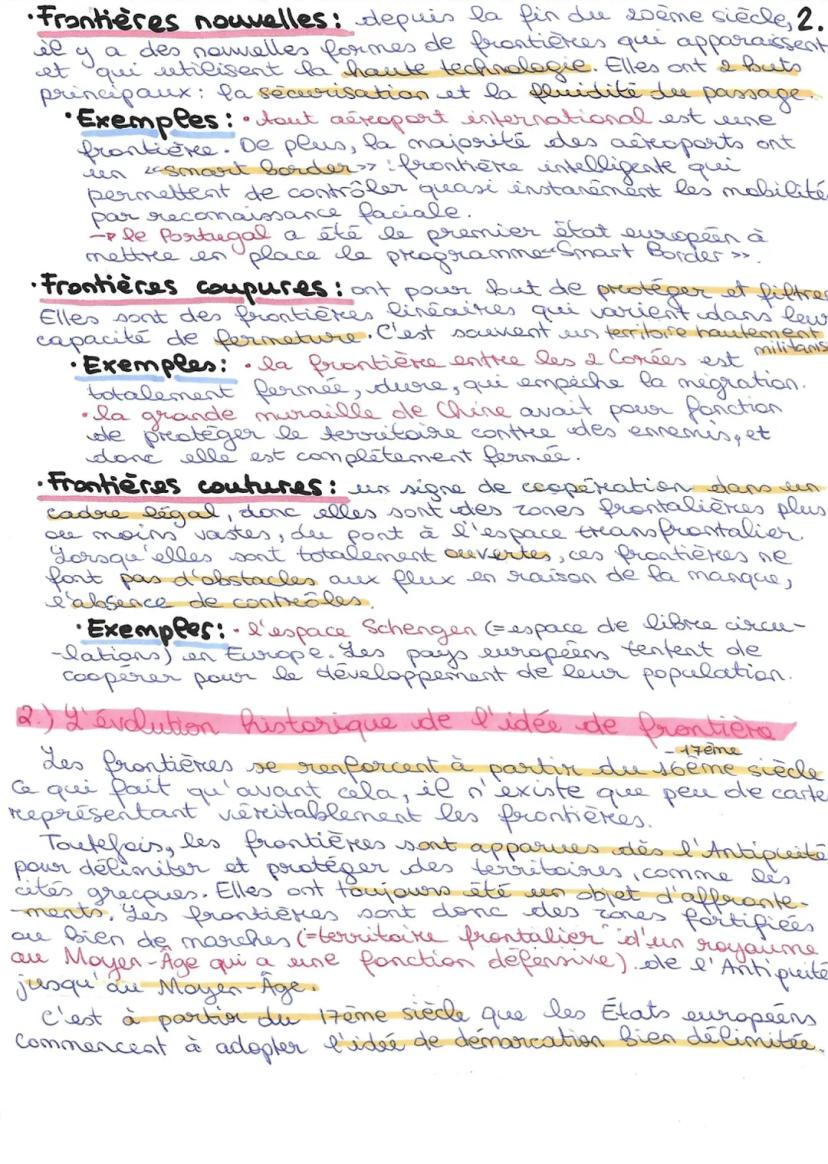 ·Frontières nouvelles: depuis la fin du 20ème siècle, 2.
il y a des nouvelles formes de frontières qui apparaissent
et qui utilisent la haute technologie. Elles ont 2 buts
principaux: la sécurisation et la fluidité du passage.
·Exemples: ·tout aéroport international est une
frontière. De plus, la majorité des aéroports ont
un «smart border» : frontière intelligente qui
permettent de contrôler quasi instanément les mobilité
par reconaissance faciale.
→ le Portugal a été le premier état européen à
mettre en place le programme «Smart Border».
·Frontières coupures: ont pour but de protéger et filtrer
Elles sont des frontières linéaires qui varient dans leur
capacité de fermeture. C'est souvent un territoire hautement
militaris
·Exemples: ·la frontière entre les 2 Corées est
totalement fermée, dure, qui empêche la migration.
·la grande muraille de Chine avait pour fonction
de protéger le territoire contre des ennemis, et
donc elle est complètement fermée.
·Frontières coutures: un signe de coopération dans un
cadre légal, donc elles sont des zones frontalières plus
ou moins vastes, du pont à l'espace transfrontalier.
Lorsqu'elles sont totalement ouvertes, ces frontières ne
font pas d'obstacles aux flux en raison de la manque,
l'absence de contrôles.
·Exemples: ·l'espace Schengen (=espace de libre circu-
-lations) en Europe. Les pays européens tentent de
coopérer pour le développement de leur population.
2.) L'évolution historique de l'idée de frontière
-17ème
Les frontières se renforcent à partir du 16ème siècle
ce qui fait qu'avant cela, il n'existe que peu de carte
représentant véritablement les frontières.
Toutefois, les frontières sont apparues dès l'Antiquité
pour délimiter et protéger des territoires, comme les
cités grecques. Elles ont toujours été un objet d'affronte-
-ments. Les frontières sont donc des zones fortifiées
ou bien de marches (=territoire frontalier d'un royaume
au Moyen-Âge qui a une fonction défensive) de l'Antiquité
jusqu'au Moyen-Âge.
C'est à partir du 17ème siècle que les États européens
commencent à adopter l'idée de démarcation bien délimitée.